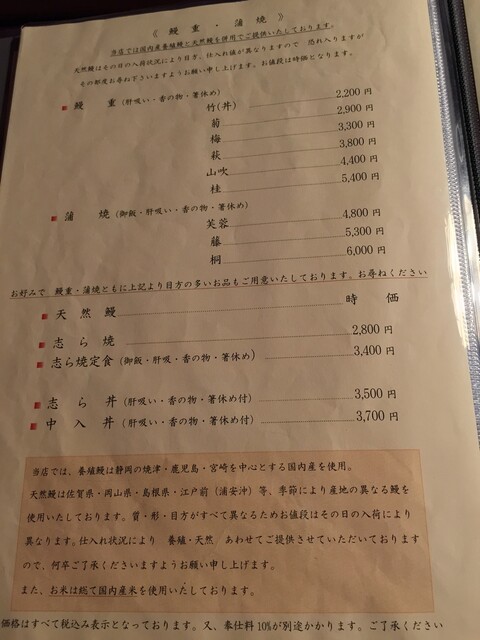 《 鰻重・蒲焼 》
当店では国内産養殖鰻と天然鰻を併用でご提供いたしております。
天然鰻はその日の入荷状況により目方、仕入れ値が異なりますので 恐れ入りますが
その都度お尋ね下さいますようお願い申し上げます。お値段は時価となります。
鰻 重 (肝吸い・香の物・箸休め)
竹(丼) 2,200 円
菊 2,900 円
梅 3,300 円
萩 3,800 円
山吹 4,400 円
桂 5,400 円
蒲 焼 (御飯・肝吸い・香の物・箸休め)
芙蓉 4,800 円
藤 5,300 円
桐 6,000 円
お好みで 鰻重・蒲焼ともに上記より目方の多いお品もご用意いたしております。お尋ねください
天 然 鰻 時 価
志 ら 焼 2,800 円
志ら焼定食 (御飯・肝吸・香の物・箸休め) 3,400 円
志 ら 丼 (肝吸い・香の物・箸休め付) 3,500 円
中 入 丼 (肝吸い・香の物・箸休め付) 3,700 円
当店では、養殖鰻は静岡の焼津・鹿児島・宮崎を中心とする国内産を使用。
天然鰻は佐賀県・岡山県・島根県・江戸前（浦安沖）等、季節により産地の異なる鰻を
使用いたしております。質・形・目方がすべて異なるためお値段はその日の入荷により
異なります。仕入れ状況により 養殖・天然 あわせてご提供させていただいております
ので、何卒ご了承くださいますようお願い申し上げます。
また、お米は総て国内産米を使用いたしております。
価格はすべて税込み表示となっております。又、奉仕料 10%が別途かかります。ご了承ください